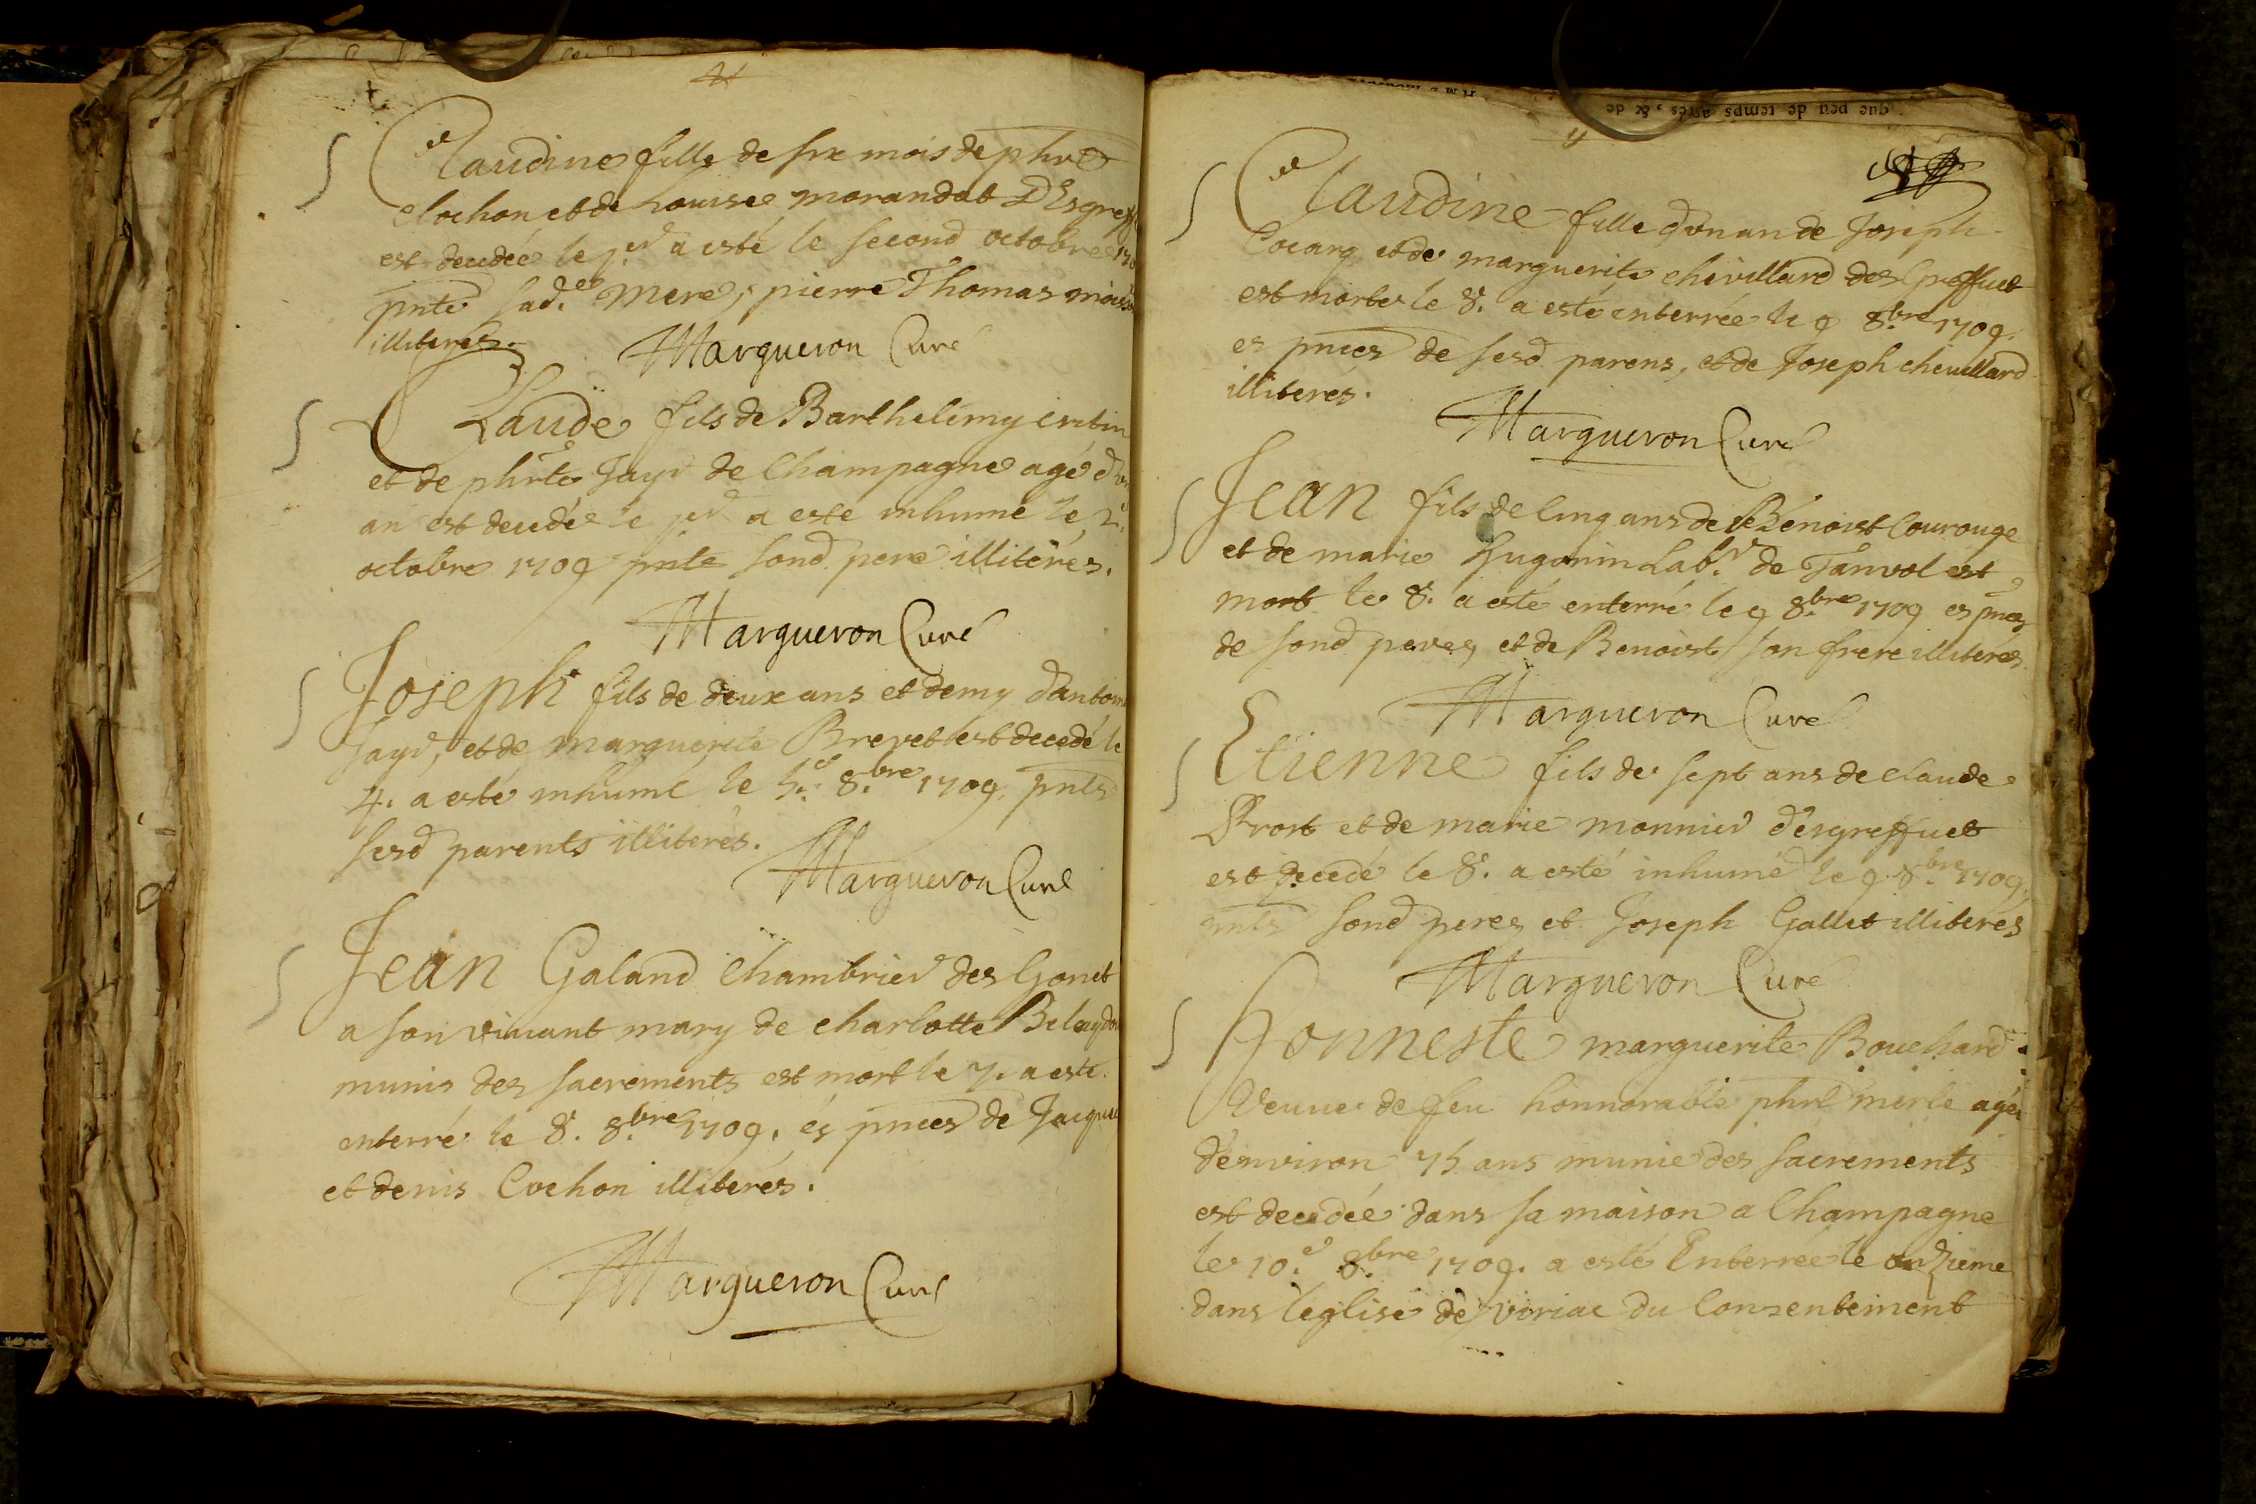 Claudine fille de six mois de phrt
Cochon et de Louise morandat D'Esgreff
est decedée le per a esté le second octobre 170
pnte sad.e Mere, pierre Thomas
illiteres.
Margueron Curé
Claude fils de Barthelemy
et de phrte Jayr de Champagne agé d'un
an est decedé le per a esté inhumé le 2.e
octobre 1709 pnte sond pere illiterés.
Margueron Curé
Joseph fils de deux ans et demy d'antoin
Jayr, et de marguerite Brevet est decedé le
4. a esté inhumé le 5.e 8.bre 1709. pnts
sesd parents illiterés.
Margueron Curé
Jean Galand Chambrier des Gonet
a son vivant mary de charlotte
munis des sacrements est mort le 7. a esté
enterré le 8. 8.bre 1709. és pnces de Jacque
et denis Cochon illiterés.
Margueron Curé
que peu de temps après, & de
Claudine fille d'un an de Joseph
Cocarq et de marguerite chevillard des Greffuet
est morte le 8. a esté enterrée le 9 8.bre 1709.
es pnces de sesd parens, et de Joseph chevillard
illiterés.
Margueron Curé
Jean fils de cinq ans de Bénoist Courouge
et de marie Hugonin Lab.r de Tanvol est
mort le 8. a esté enterré le 9 8.bre 1709 es pnces
de sond pere, et de Benoist son frere illiteres
Margueron Curé
Etienne fils de sept ans de claude
Prost et de marie monnier d'esgreffuet
est decedé le 8. a esté inhumé le 9 8.bre 1709.
pnts sond pere, et Joseph Gallet illiterés
Margueron Curé
Honneste marguerite Bouchard
Veuve de feu honnorable phrt merle agée
d'environ 75 ans munie des sacrements
est decedée dans sa maison a Champagne
le 10.e 8.bre 1709. a esté Enterrée le ondzieme
dans l'eglise de viriac du Consentement